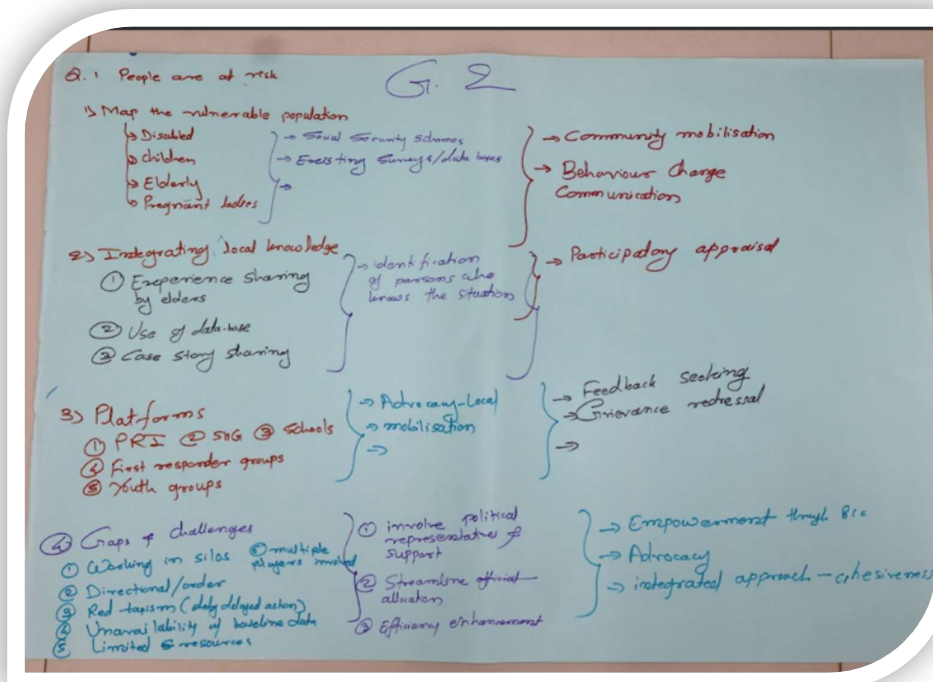 G. 2
Q.1 People are at risk
1) Map the vulnerable population
↳ Disabled
↳ children
↳ Elderly
↳ Pregnant ladies
→ Social Security schemes
→ Existing Surveys/data bases
→
→ Community mobilisation
→ Behaviour Change
Communication
2) Integrating local knowledge
① Experience sharing
by elders
② Use of data-base
③ Case story sharing
→ identification
of persons who
knows the situation
→ Participatory appraisal
3) Platforms
① PRI ② SHG ③ Schools
④ First responder groups
⑤ Youth groups
→ Advocacy-Local
→ mobilisation
→
→ Feedback seeking
→ Grievance redressal
→
④ Gaps & challenges
① Working in silos ⑥ multiple
players involved
② Directional/order
③ Red tapism (delayed action)
④ Unavailability of baseline data
⑤ Limited resources
① involve political
representatives &
support
② Streamline official
allocation
③ Efficiency enhancement
→ Empowerment through BCC
→ Advocacy
→ integrated approach - cohesiveness